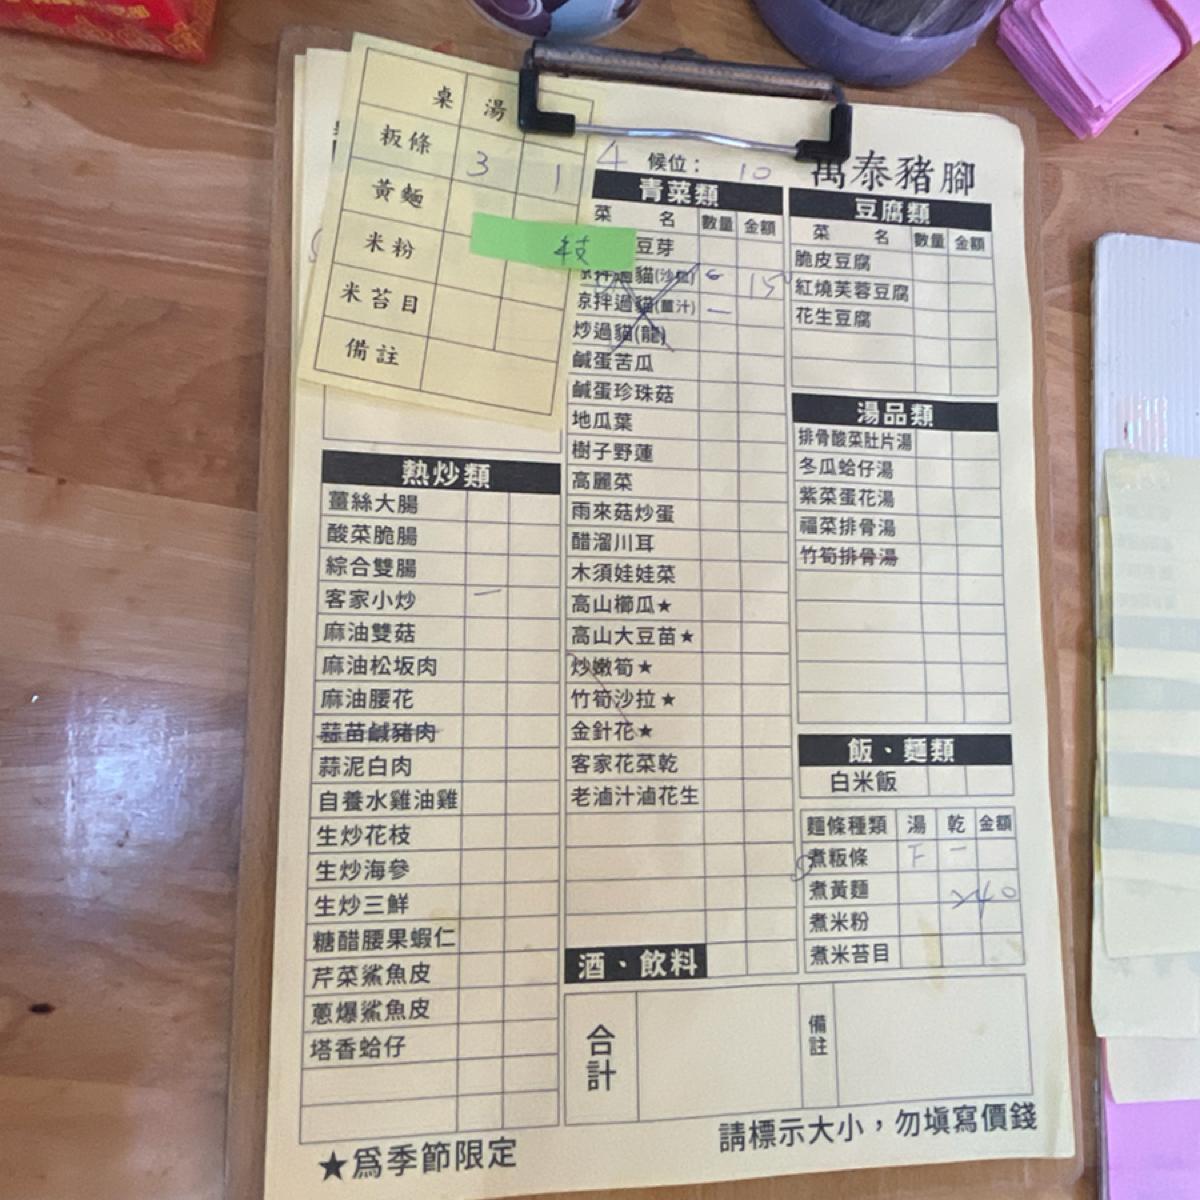 桌 湯
粄條 3 1
黃麵
米粉
米苔目
備註
枝
4 候位： 10
萬泰豬腳
青菜類
菜 名 數量 金額
豆芽
涼拌過貓(沙拉)
涼拌過貓(薑汁) 一
炒過貓(龍)
鹹蛋苦瓜
鹹蛋珍珠菇
地瓜葉
樹子野蓮
高麗菜
雨來菇炒蛋
醋溜川耳
木須娃娃菜
高山櫛瓜★
高山大豆苗★
炒嫩筍★
竹筍沙拉★
金針花★
客家花菜乾
老滷汁滷花生
酒、飲料
熱炒類
薑絲大腸
酸菜脆腸
綜合雙腸
客家小炒 一
麻油雙菇
麻油松坂肉
麻油腰花
蒜苗鹹豬肉
蒜泥白肉
自養水雞油雞
生炒花枝
生炒海參
生炒三鮮
糖醋腰果蝦仁
芹菜鯊魚皮
蔥爆鯊魚皮
塔香蛤仔
豆腐類
菜 名 數量 金額
脆皮豆腐
紅燒芙蓉豆腐
花生豆腐
湯品類
排骨酸菜肚片湯
冬瓜蛤仔湯
紫菜蛋花湯
福菜排骨湯
竹筍排骨湯
飯、麵類
白米飯
麵條種類 湯 乾 金額
煮粄條 一
煮黃麵
煮米粉
煮米苔目
合計
備註
★為季節限定
請標示大小，勿填寫價錢